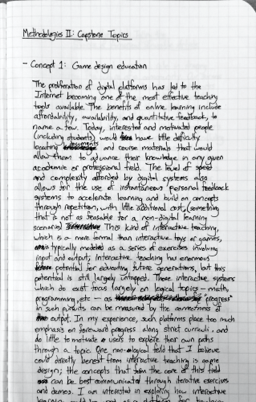 Methodologies II: Capstone Topics
- Concept 1: Game design education
The proliferation of digital platforms has led to the
Internet becoming one of the most effective teaching
tools available. The benefits of online learning include
affordability, availability, and quantitative feedback, to
name a few. Today, interested and motivated people
(including students) would have little difficulty
locating documents and course materials that would
allow them to advance their knowledge in any given
academic or professional field. The level of
and complexity afforded by digital systems also
allows for the use of instantaneous personal feedback
systems to accelerate learning and build on concepts
through repetition, with little additional cost, something
that is not as feasible for a non-digital learning
scenario. This kind of interactive teaching,
which is a more formal than interactive toys or games,
is typically modeled as a series of exercises involving
input and output. Interactive teaching has enormous
potential for educating future generations, but this
potential is still largely untapped. These interactive systems
which do exist focus largely on logical topics - math,
programming, etc - as "progress"
in such pursuits can be measured by the correctness of
the output. In my experience, such platforms place too much
emphasis on forward progress along strict curricula, and
do little to motivate users to explore their own paths
through a topic. One non-logical field that I believe
could directly benefit from interactive teaching is game
design; the concepts that form the core of this field
can be best communicated through iterative exercises
and demos. I am interested in exploring how interactive